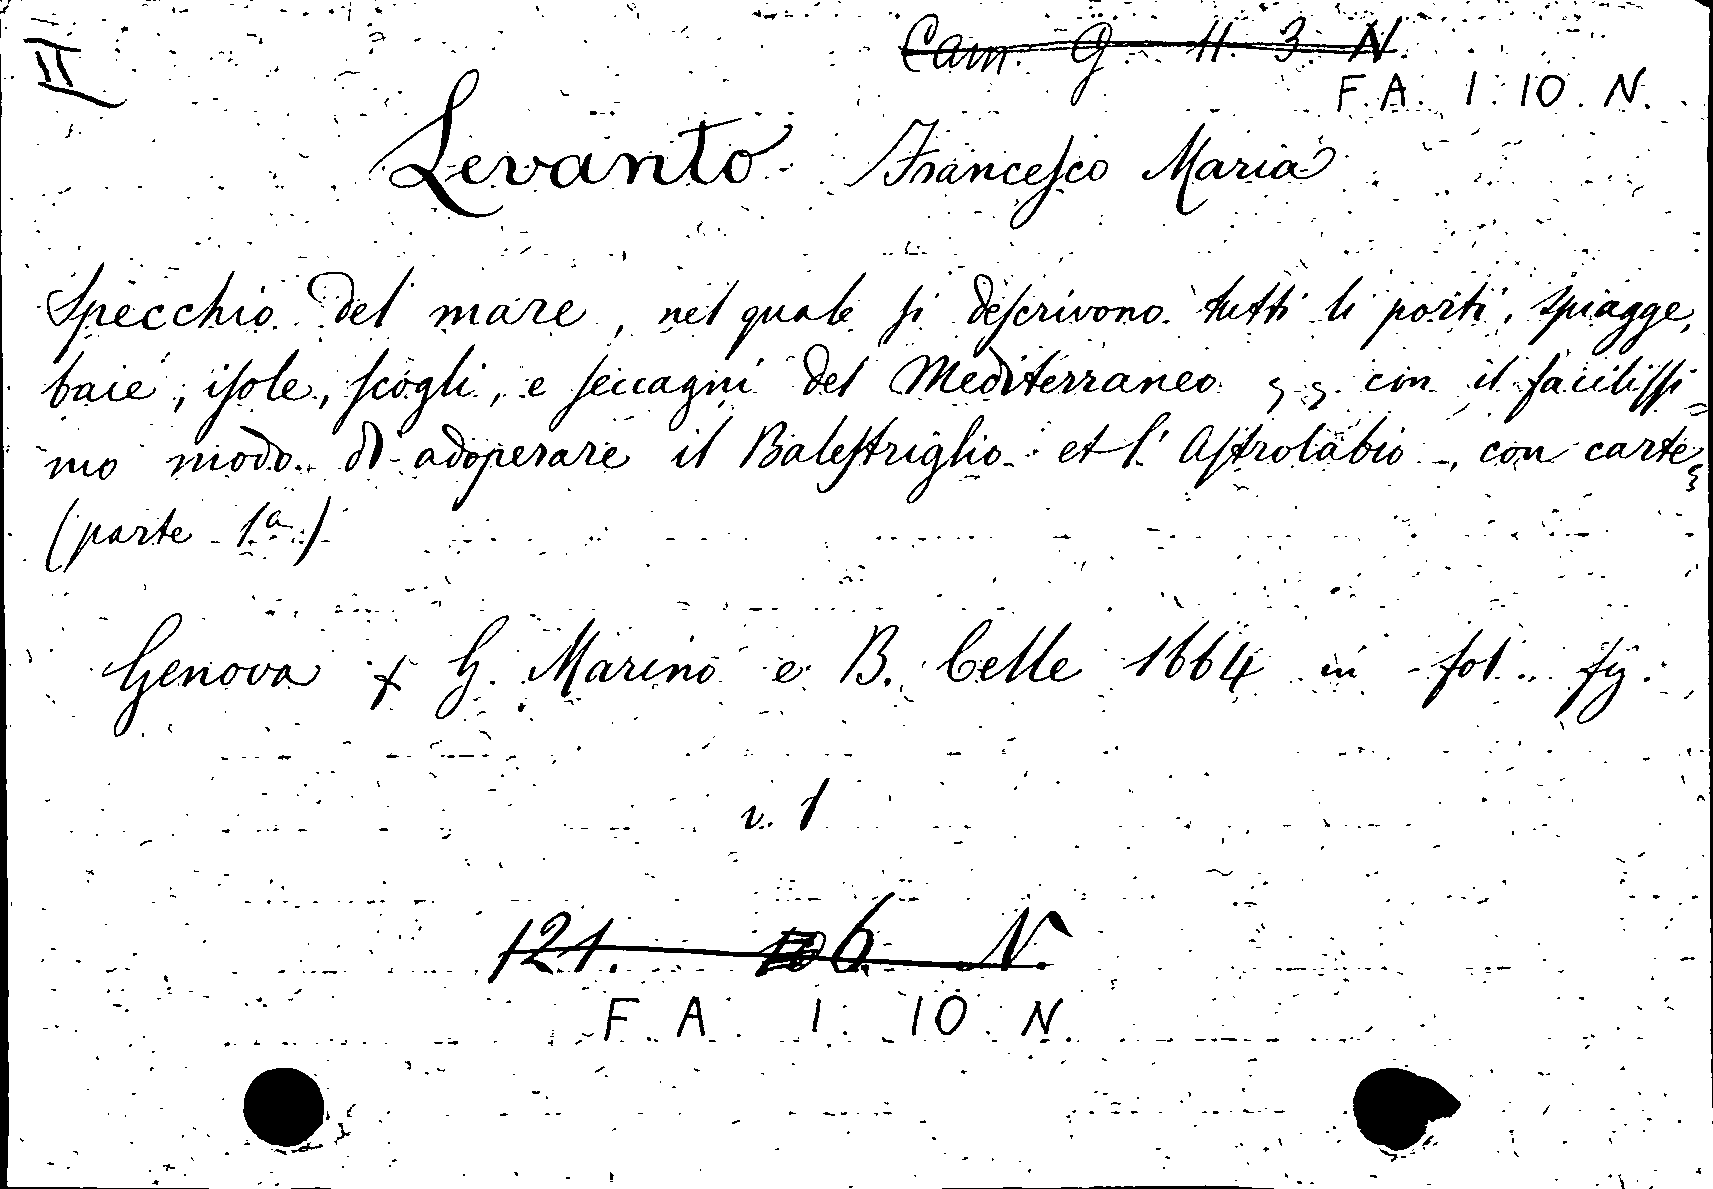 II
Cam. G. 11. 3. N.
F. A. 1. 10. N.
Levanto Francesco Maria
Specchio del mare, nel quale si descrivono tutti li porti, spiagge,
baie, isole, scogli, e seccagni del Mediterraneo con il facilissi=
mo modo di adoperare il Balestriglio et l'Astrolabio, con carte
(parte 1a)
Genova G. Marino e B. Celle 1664 in fol. fig.
v. 1
121. 6. N.
F. A. 1. 10. N.